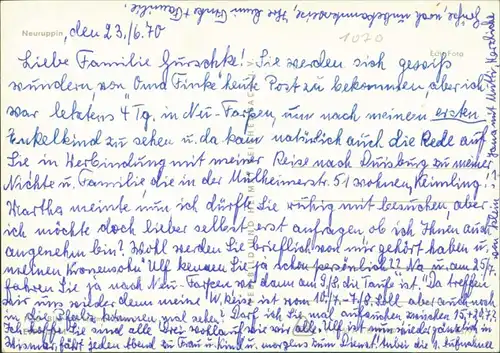 Neuruppin, den 23./6.70
1070
Echt Foto
Liebe Familie Gurschke! Sie werden sich gewiß
wundern von "Oma Finke" heute Post zu bekommen aber ich
war letztens 4 Tg. in Nu-Farpen, um nach meinem ersten
Enkelkind zu sehen u. da kam natürlich auch die Rede auf
Sie in Verbindung mit meiner Reise nach Duisburg zu meiner
Nichte u. Familie die in der Mülheimerstr. 51 wohnen,
Martha meinte nun ich dürfte Sie ruhig mit besuchen, aber
ich möchte doch lieber selbst erst anfragen ob ich Ihnen auch
angenehm bin? Wohl werden Sie brieflich von mir gehört haben u.
meinen "Kronensohn" Ulf kennen Sie ja schon persönlich?? Na u. am 25/7.
fahren Sie ja nach Neu-Farpen wo dann am 9/8. die Taufe ist. "Da treffen
wir uns wieder denn meine W. Reise ist vom 10/7.-7/8. soll aber auch noch
in die Pfalz kommen mal sehen? Darf ich Sie mal aufsuchen zwischen 15.+20/7.?
Ich hoffe Sie sind alle Drei wohlauf wie wir alle. Ulf ist nun wieder gänzlich in
Wismar, fährt jeden Abend zu Frau u. Kind u. morgens zum Dienst.